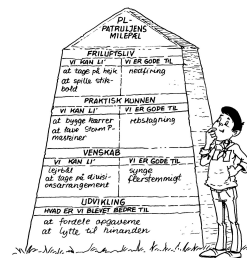 PL-
PATRULJENS
MILEPÆL
FRILUFTSLIV
VI KAN LI'
VI ER GODE TIL
at tage på hejk
at spille stik-
bold
nedfiring
PRAKTISK KUNNEN
VI KAN LI'
VI ER GODE TIL
at bygge kærrer
at lave Storm P-
maskiner
rebstagning
VENSKAB
VI KAN LI'
VI ER GODE TIL
lejrbål
at tage på divisi-
onsarrangement
synge
flerstemmigt
UDVIKLING
HVAD ER VI BLEVET BEDRE TIL
at fordele opgaverne
at lytte til hinanden